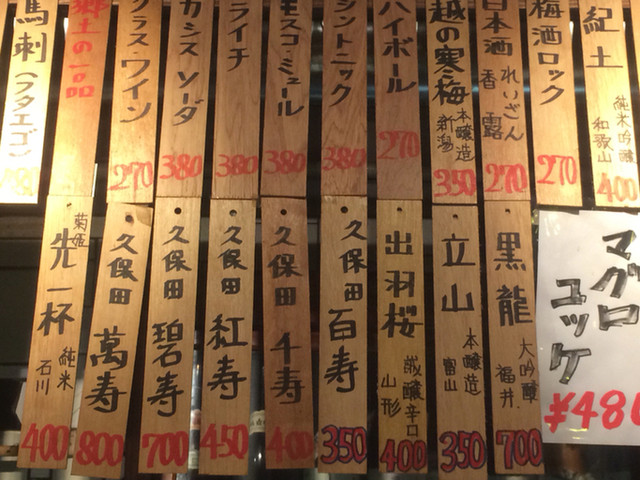 紀土
純米吟醸
和歌山
400
梅酒ロック
270
日本酒
れいざん
香露
270
越の寒梅
本醸造
新潟
350
ハイボール
270
ジントニック
380
モスコミュール
380
ライチ
380
カシスソーダ
380
グラスワイン
270
郷土の一品
馬刺(フタエゴ)
マグロ
ユッケ
黒龍
大吟醸
福井
700
立山
本醸造
富山
350
出羽桜
山形
400
久保田
百寿
350
久保田
千寿
400
久保田
紅寿
450
久保田
碧寿
700
久保田
萬寿
800
菊姫
先一杯
純米
石川
400